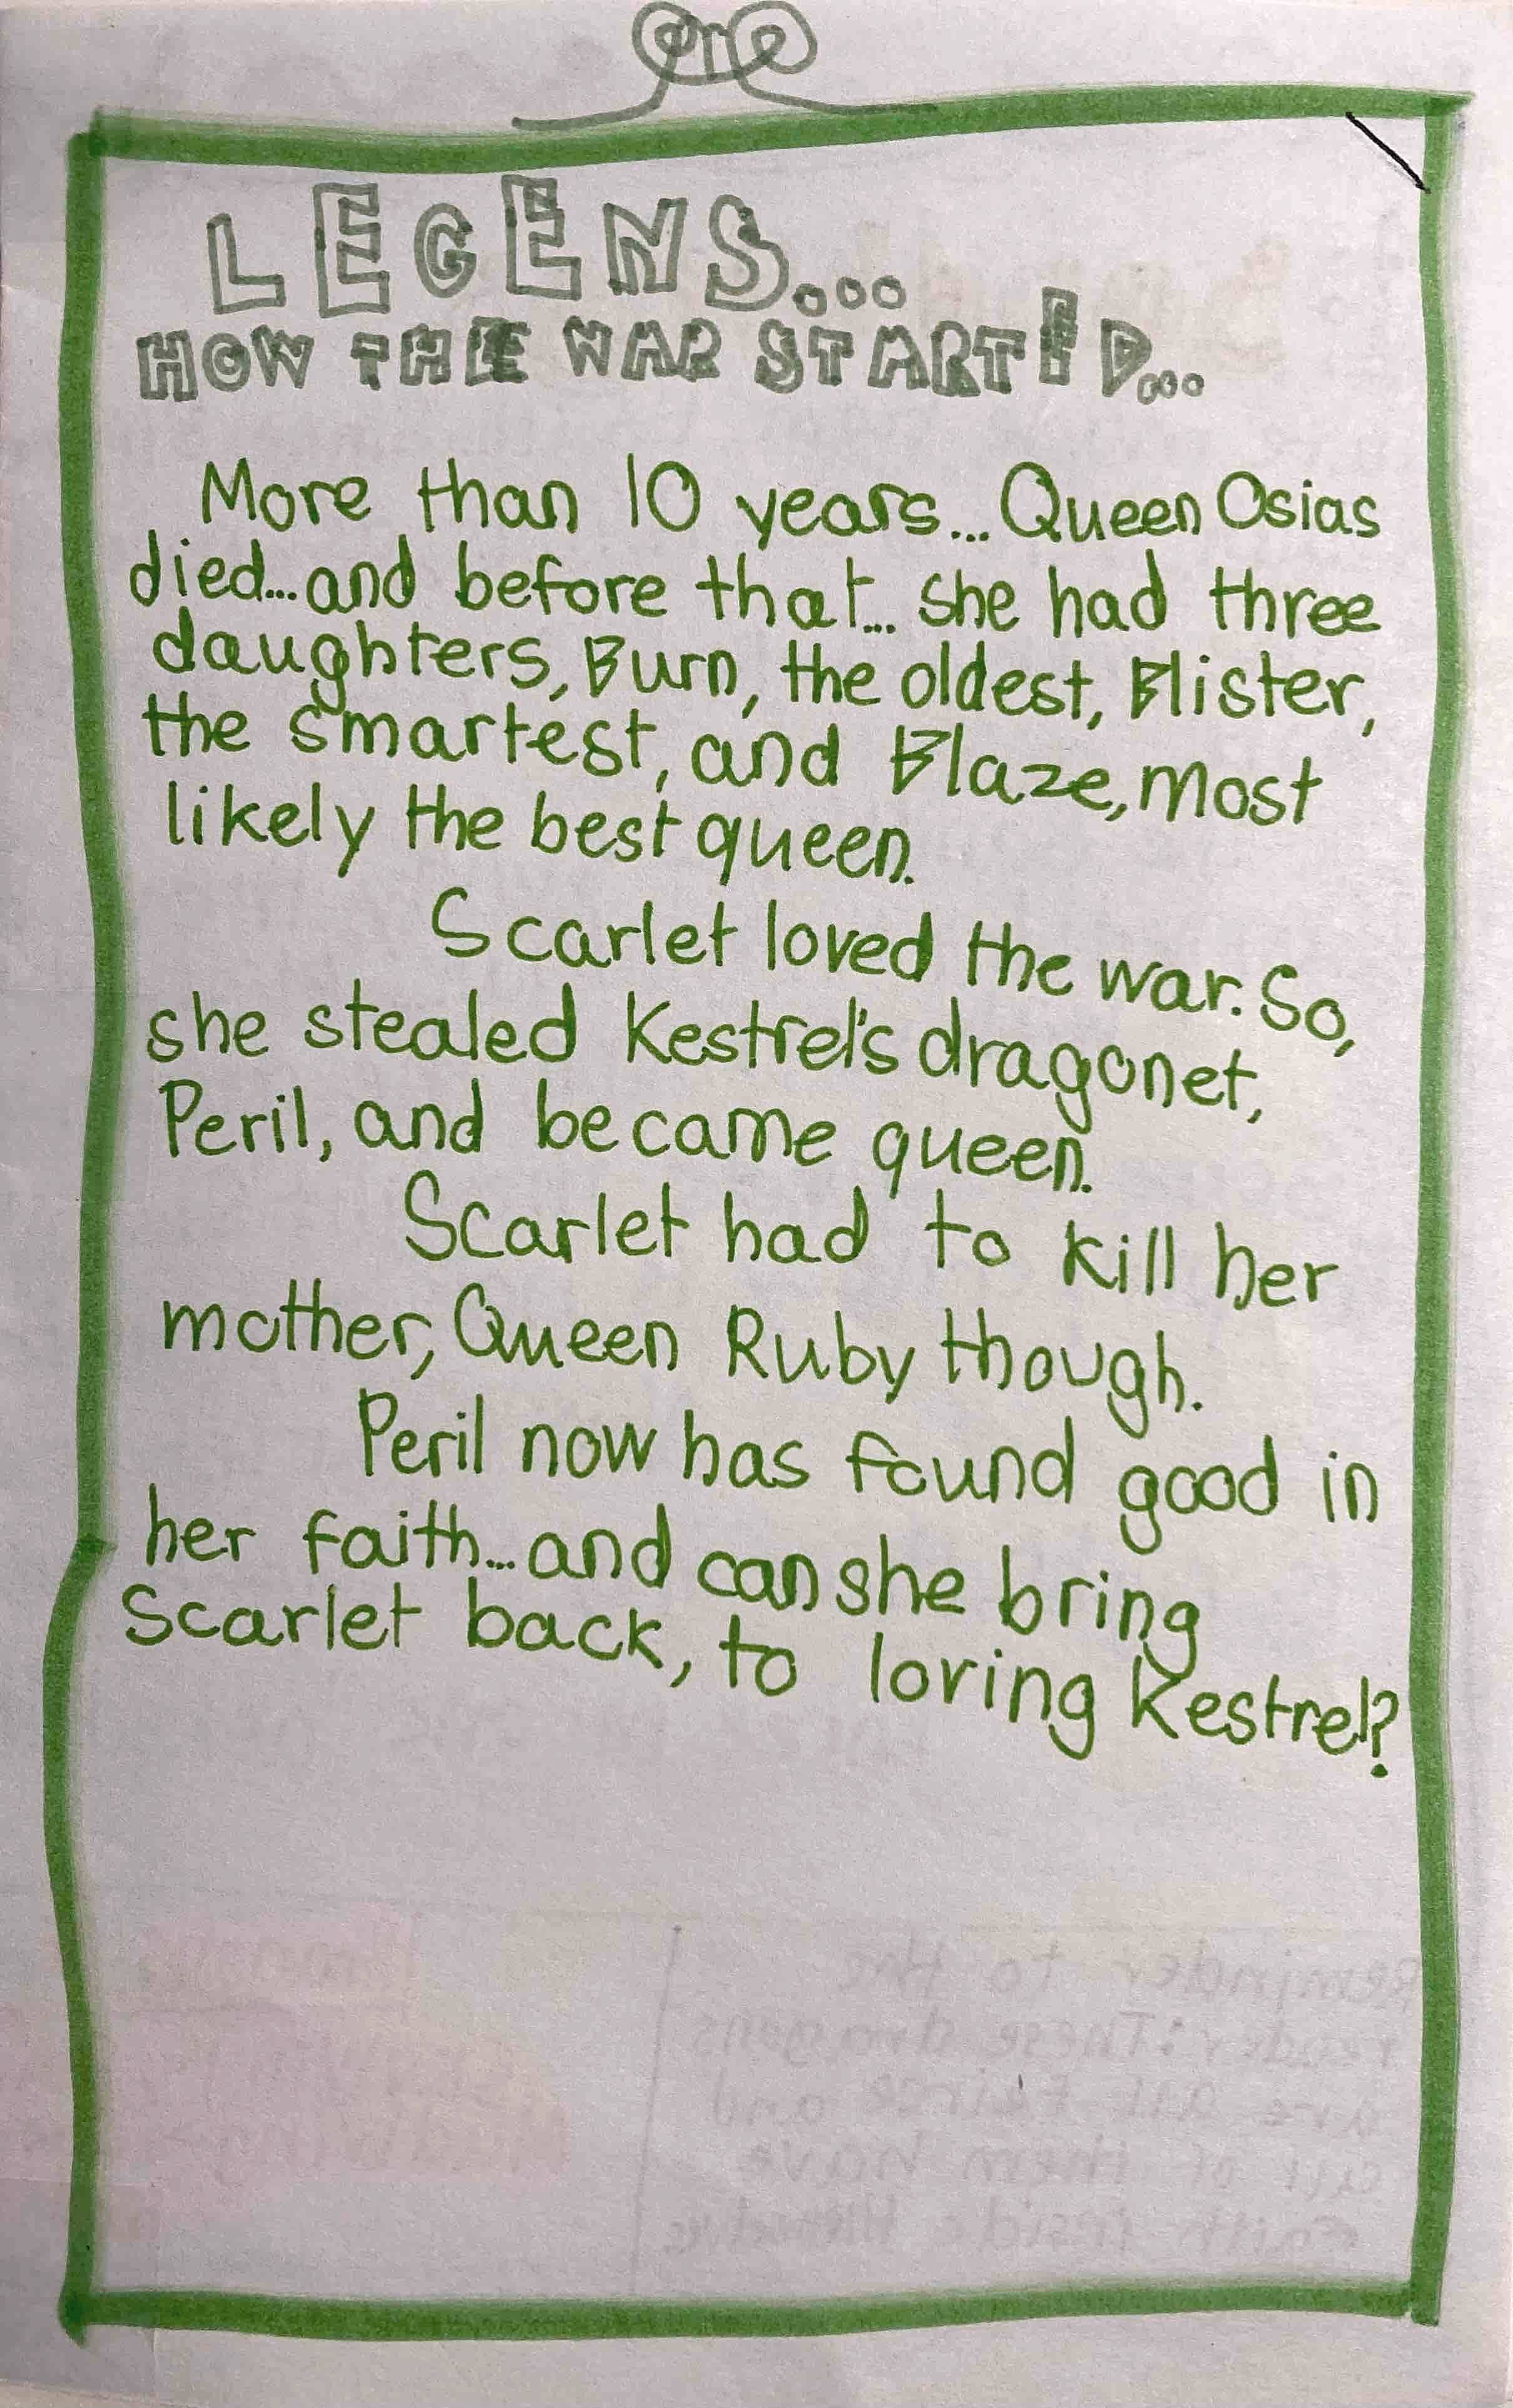 one
LEGENS...
HOW THE WAR STARTED...
More than 10 years... Queen Osias
died... and before that... she had three
daughters, Burn, the oldest, Blister,
the smartest, and Blaze, most
likely the best queen.
Scarlet loved the war. So,
she stealed Kestrel's dragonet,
Peril, and became queen.
Scarlet had to kill her
mother, Queen Ruby though.
Peril now has found good in
her faith... and can she bring
Scarlet back, to loving Kestrel?
Reminder to the
reader: These dragons
are all Feirce and
all of them have
Faith inside